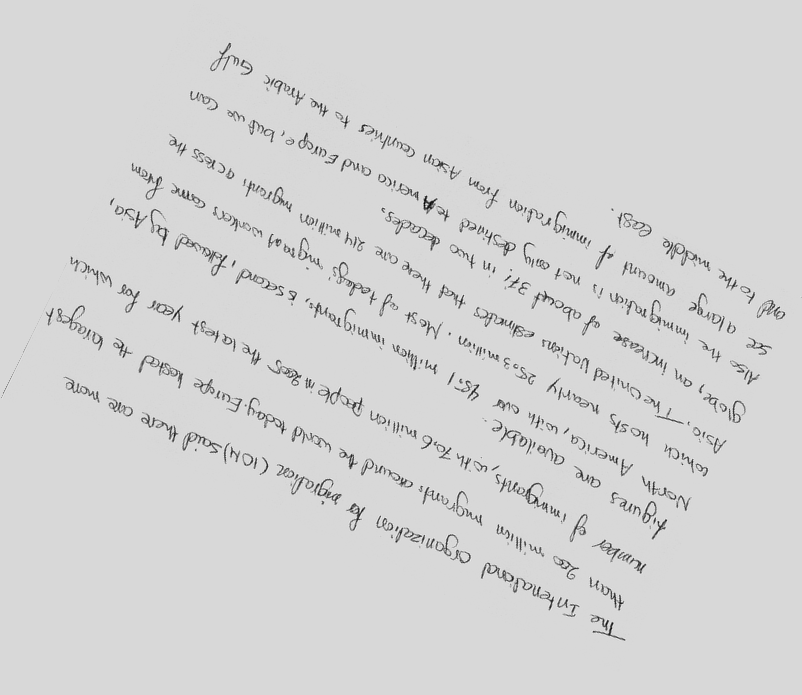 The Intenational organization for migration (IOM) said there are more
than 200 million migrants around the world today. Europe hosted the laragest
number of immigants, with 70.6 million people in 2005 the latest year for which
figures are available.
North America, with over 45.1 million immigrants, is second, followed by Asia,
which hosts nearly 25.3 million. Most of today's migrant workers come from
Asia. The United Nations estimates that there are 214 million migrants across the
globe, an increase of about 37% in two decades.
Also the immigration is not only destined to America and Europe, but we can
see a large amount of immigration from Asian countries to the Arabic Gulf
and to the middle East.